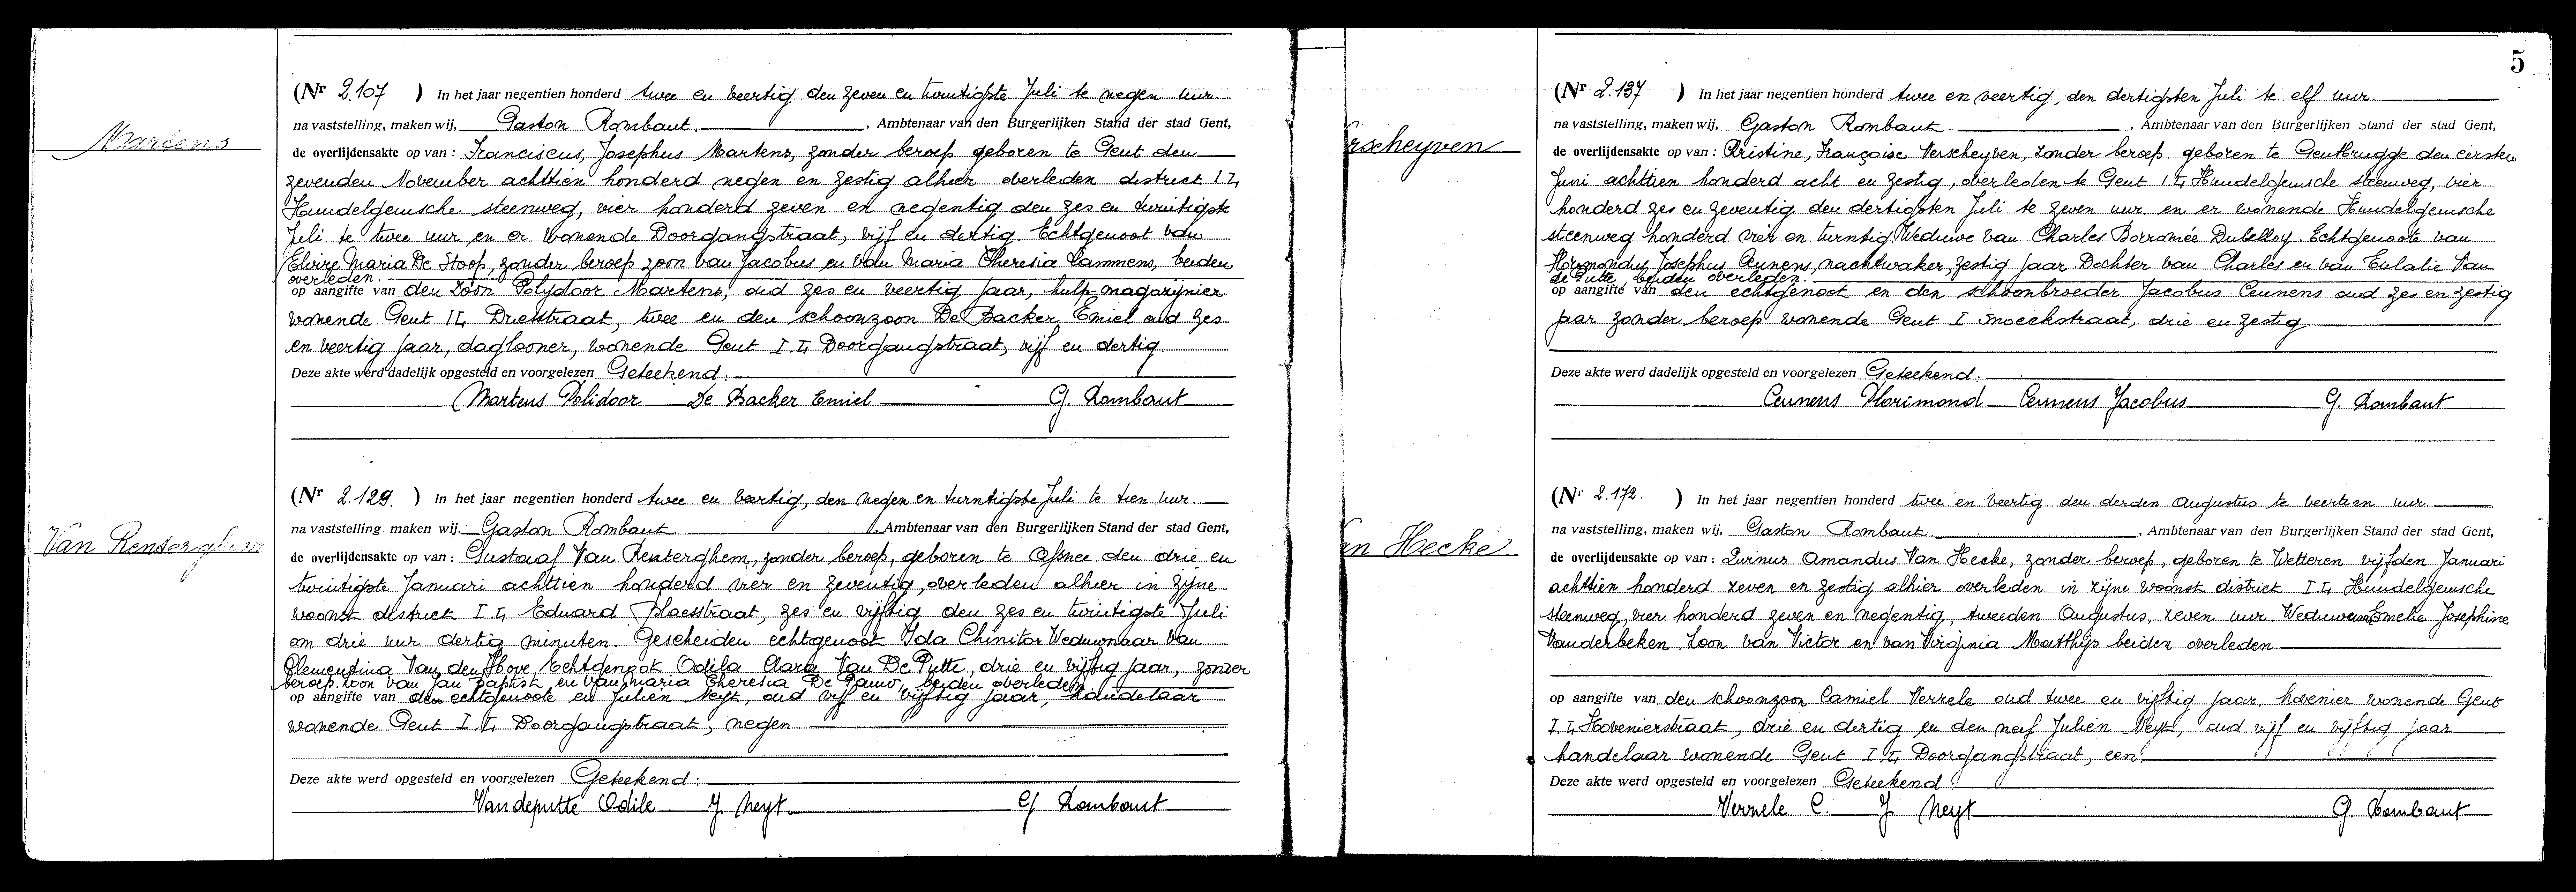 Martens
(Nr 2.107 ) In het jaar negentien honderd twee en veertig den zeven en twintigste Juli te negen uur.
na vaststelling, maken wij, Gaston Rombaut , Ambtenaar van den Burgerlijken Stand der stad Gent,
de overlijdensakte op van : Franciscus, Josephus Martens, zonder beroep geboren te Gent den
zevenden November achttien honderd negen en zestig alhier overleden district I.L
Hundelgemsche steenweg, vier honderd zeven en negentig den zes en twintigste
Juli te twee uur en er wonende Doorgangstraat, vijf en dertig. Echtgenoot van
Elvire Maria De Stoop, zonder beroep zoon van Jacobus en van Maria Theresia Lammens, beiden
overleden.
op aangifte van den zoon Polydoor Martens, oud zes en veertig jaar, hulp-magazijnier
wonende Gent I.L Driestraat, twee en den schoonzoon De Backer Emiel oud zes
en veertig jaar, daglooner, wonende Gent I.L Doorgangstraat, vijf en dertig.
Deze akte werd dadelijk opgesteld en voorgelezen Geteekend:
Martens Polidoor De Backer Emiel G. Rombaut
Van Renterghem
(Nr 2.129. ) In het jaar negentien honderd twee en veertig, den negen en twintigste Juli te tien uur.
na vaststelling maken wij Gaston Rombaut , Ambtenaar van den Burgerlijken Stand der stad Gent,
de overlijdensakte op van : Gustaaf Van Renterghem, zonder beroep, geboren te Afsnee den drie en
twintigste Januari achttien honderd vier en zeventig, overleden alhier in zijne
woonst district I.L Eduard Blaesstraat, zes en vijftig den zes en twintigste Juli
om drie uur dertig minuten. Gescheiden echtgenoot Ida Chinitor Weduwnaar van
Clementina Van den Hove Echtgenoot Odila Clara Van De Putte, drie en vijftig jaar, zonder
beroep. zoon van Jan Baptist en van Maria Theresia De Pauw, beiden overleden
op aangifte van den echtgenoote en Julien Neyt, oud vijf en vijftig jaar, handelaar
wonende Gent I.L Doorgangstraat, negen
Deze akte werd opgesteld en voorgelezen Geteekend:
Vandeputte Odile J Neyt G Rombaut
5
rscheyven
(Nr 2.137 ) In het jaar negentien honderd twee en veertig, den dertigsten Juli te elf uur.
na vaststelling, maken wij, Gaston Rombaut , Ambtenaar van den Burgerlijken Stand der stad Gent,
de overlijdensakte op van : Christine, Françoise Verscheyven, zonder beroep geboren te Gentbrugge den eersten
Juni achttien honderd acht en zestig, overleden te Gent I.L Hundelgemsche steenweg, vier
honderd zes en zeventig den dertigsten Juli te zeven uur en er wonende Hundelgemsche
steenweg honderd vier en twintig Weduwe van Charles Borromée Dubelloy. Echtgenoote van
Josephus Ceunens, nachtwaker, zestig jaar Dochter van Charles en van Eulalie Van
de Putte, beiden overleden.
op aangifte van den echtgenoot en den schoonbroeder Jacobus Ceunens oud zes en zestig
jaar zonder beroep wonende Gent I Snoeckstraat, drie en zestig
Deze akte werd dadelijk opgesteld en voorgelezen Geteekend.
Ceunens Florimond Ceunens Jacobus G. Rombaut
an Hecke
(Nr 2.172. ) In het jaar negentien honderd twee en veertig den derden Augustus te veertien uur.
na vaststelling, maken wij, Gaston Rombaut , Ambtenaar van den Burgerlijken Stand der stad Gent,
de overlijdensakte op van : Livinus Amandus Van Hecke, zonder beroep, geboren te Wetteren vijfden Januari
achttien honderd zeven en zestig alhier overleden in zijne woonst district I.L Hundelgemsche
steenweg, vier honderd zeven en negentig, tweeden Augustus, zeven uur. Emelie Josephine
Vanderbeken Zoon van Victor en van Virginia Matthijs beiden overleden.
op aangifte van den schoonzoon Camiel Verrele oud twee en vijftig jaar, hovenier wonende Gent
I.L Hovenierstraat, drie en dertig en den neef Julien Neyt, oud vijf en vijftig jaar
handelaar wonende Gent I.L Doorgangstraat, een.
Deze akte werd opgesteld en voorgelezen Geteekend!
Verrele C. J Neyt G. Rombaut